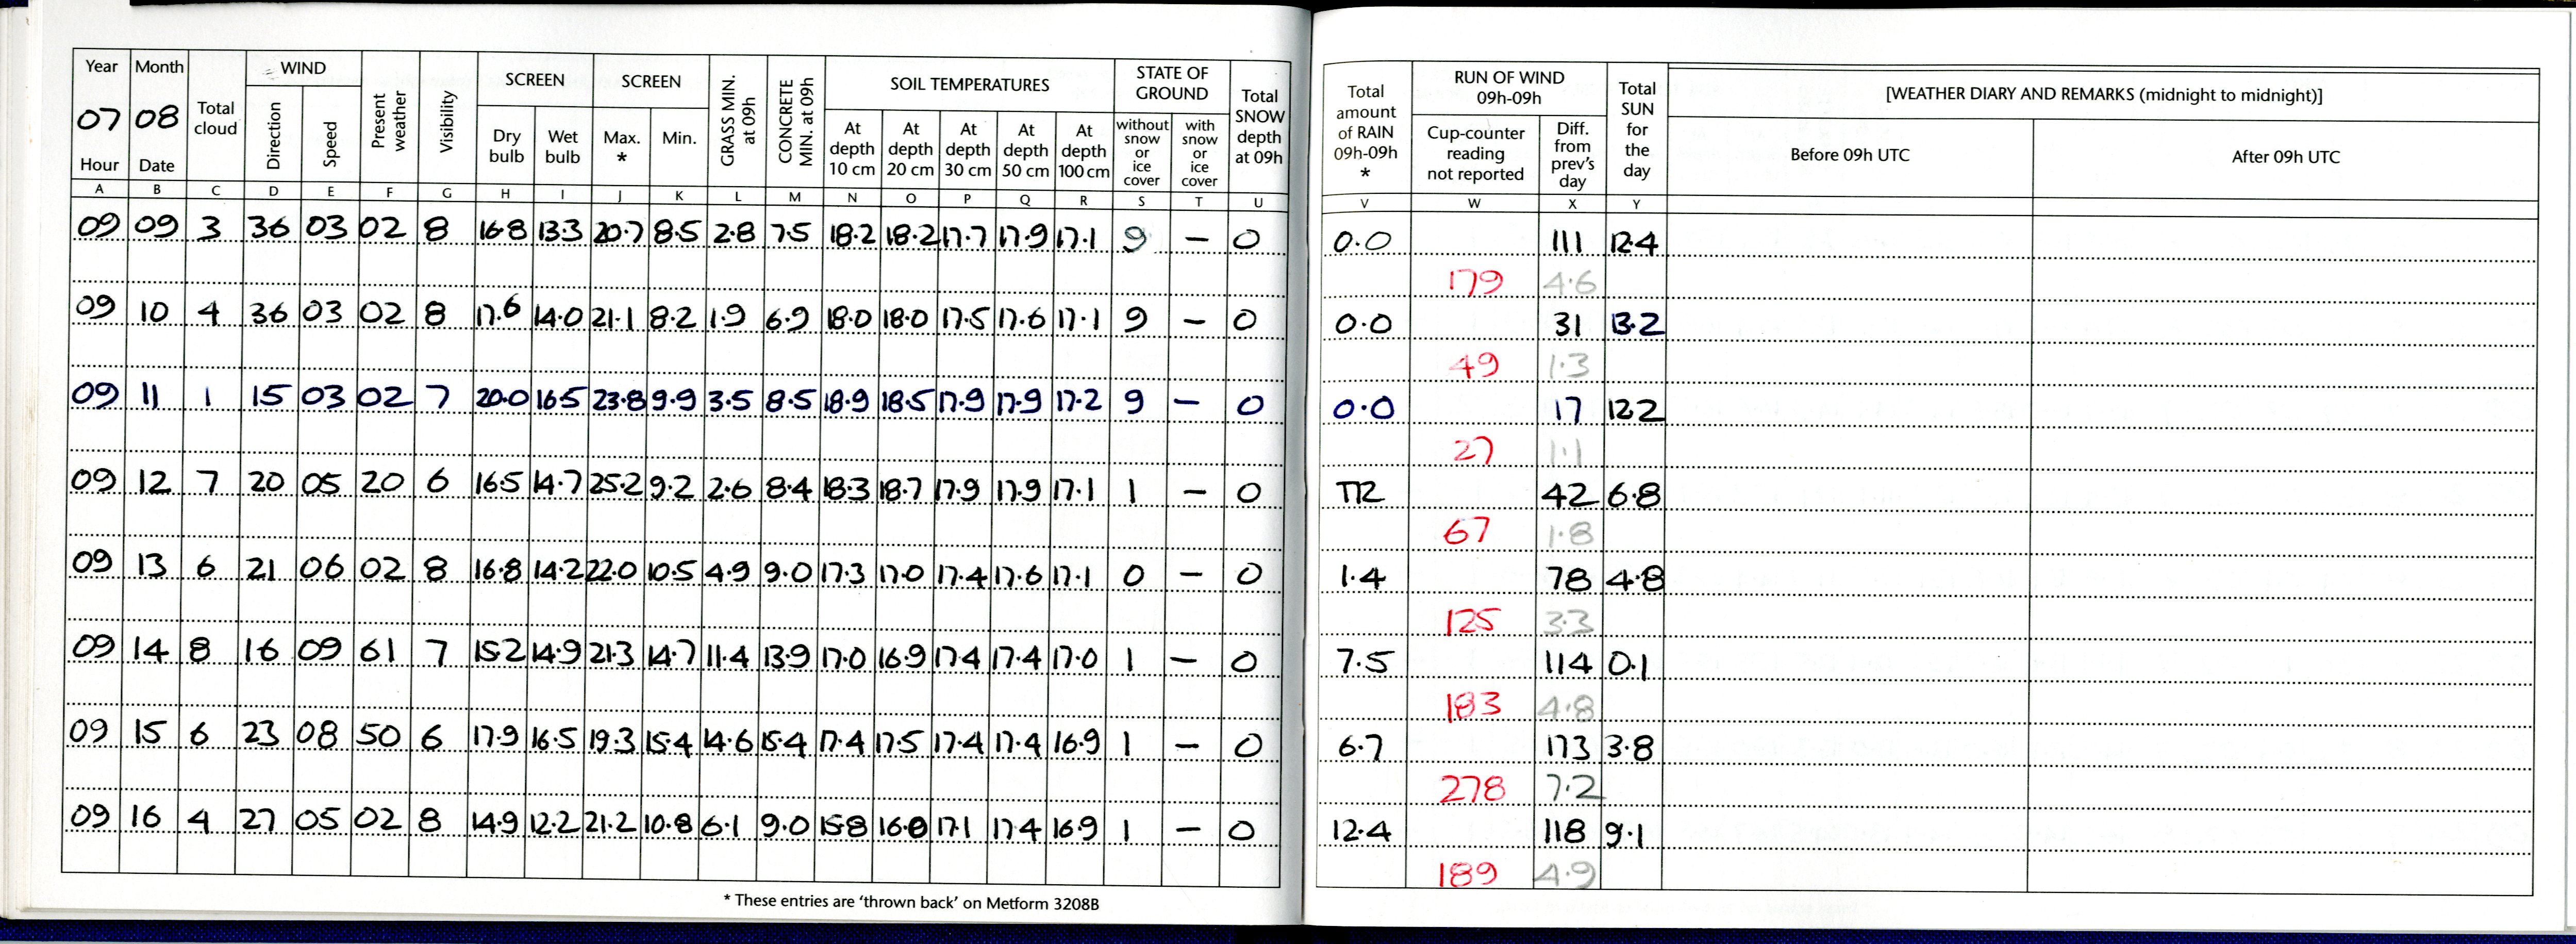 Year Month Total cloud WIND Present weather Visibility SCREEN SCREEN GRASS MIN. at 09h CONCRETE MIN. at 09h SOIL TEMPERATURES STATE OF GROUND Total SNOW depth at 09h Total amount of RAIN 09h-09h * RUN OF WIND 09h-09h Total SUN for the day [WEATHER DIARY AND REMARKS (midnight to midnight)]
07 08 Direction Speed Dry bulb Wet bulb Max. * Min. At depth 10 cm At depth 20 cm At depth 30 cm At depth 50 cm At depth 100 cm without snow or ice cover with snow or ice cover Cup-counter reading not reported Diff. from prev's day Before 09h UTC After 09h UTC
Hour Date
A B C D E F G H I J K L M N O P Q R S T U V W X Y
09 09 3 36 03 02 8 16.8 13.3 20.7 8.5 2.8 7.5 18.2 18.2 17.7 17.9 17.1 9 – 0 0.0 111 12.4
179 4.6
09 10 4 36 03 02 8 17.6 14.0 21.1 8.2 1.9 6.9 18.0 18.0 17.5 17.6 17.1 9 – 0 0.0 31 13.2
49 1.3
09 11 1 15 03 02 7 20.0 16.5 23.8 9.9 3.5 8.5 18.9 18.5 17.9 17.9 17.2 9 – 0 0.0 17 12.2
27 1.1
09 12 7 20 05 20 6 16.5 14.7 25.2 9.2 2.6 8.4 18.3 18.7 17.9 17.9 17.1 1 – 0 TR 42 6.8
67 1.8
09 13 6 21 06 02 8 16.8 14.2 22.0 10.5 4.9 9.0 17.3 17.0 17.4 17.6 17.1 0 – 0 1.4 78 4.8
125 3.3
09 14 8 16 09 61 7 15.2 14.9 21.3 14.7 11.4 13.9 17.0 16.9 17.4 17.4 17.0 1 – 0 7.5 114 0.1
183 4.8
09 15 6 23 08 50 6 17.9 16.5 19.3 15.4 14.6 15.4 17.4 17.5 17.4 17.4 16.9 1 – 0 6.7 173 3.8
278 7.2
09 16 4 27 05 02 8 14.9 12.2 21.2 10.8 6.1 9.0 15.8 16.8 17.1 17.4 16.9 1 – 0 12.4 118 9.1
189 4.9
* These entries are 'thrown back' on Metform 3208B